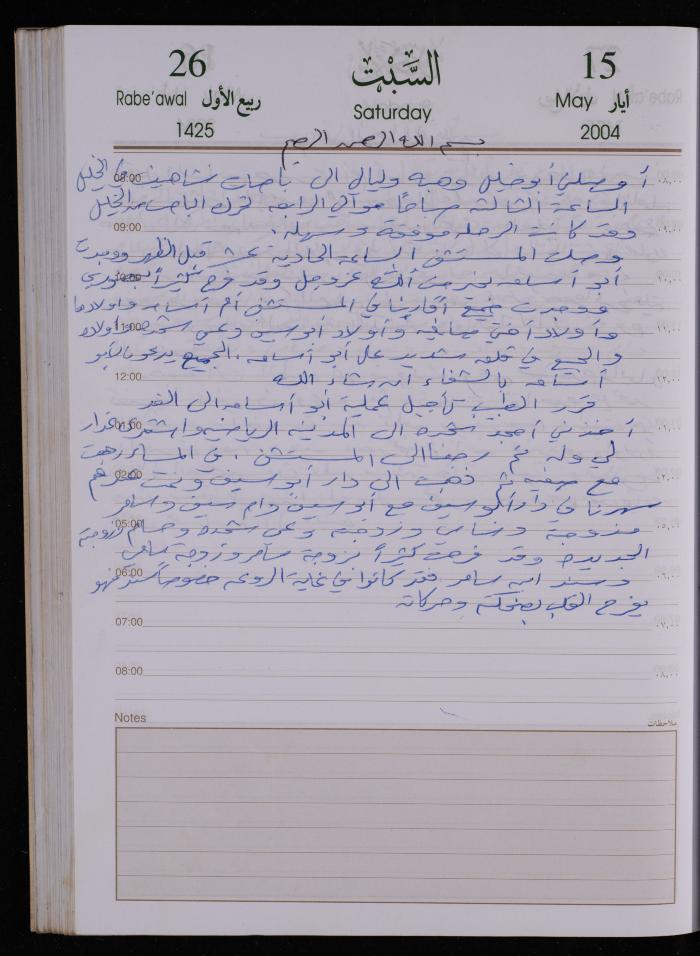 26 السَّبْت 15
Rabe'awal ربيع الأول Saturday May أيار
1425 2004
بسم الله الرحمن الرحيم
أوصلني أبو خليل وهبه وليالي الى باصات شاهين في الخليل
08:00 ٠٨,٠٠
الساعة الثالثة صباحاً حوالي الرابعة تحرك الباص من الخليل
09:00
وقد كانت الرحلة موفقة وسهلة.
وصلت المستشفى الساعة الحادية عشر قبل الظهر ووجدت
أبو أسامه بخير من الله عز وجل وقد فرح كثيراً بحضوري
ووجدت جميع أقاربنا في المستشفى أم أسامه وأولادها
11:00
وأولاد أختي وأولاد أبو سيف وعمي شحده وأولاده
والجميع في قلق شديد على أبو أسامه. الجميع يدعون لأبو
12:00
أسامه بالشفاء ان شاء الله
قرر الطبيب تأجيل عملية أبو أسامه الى الغد
أخذني أمجد شحده الى المدينة الرياضية واشتريت
01:00
لي وله ثم رجعنا الى المستشفى. في المساء ذهبت
02:00
مع ثم ذهبت الى دار أبو سيف ونمت عندهم
سهرنا في دار أبو سيف مع أبو سيف وام سيف وسامر
05:00
وزوجته وزوجته وعمي شحده وحسام وزوجته
الجديدة وقد فرحت كثيراً بزوجة سامر وزوجة
06:00
وسند ابن سامر فقد كانوا في غاية الروعة خصوصاً سند فهو
يفرح القلب بضحكته وحركاته
07:00 ٠٧,٠٠
08:00 ٠٨,٠٠
Notes ملاحظات